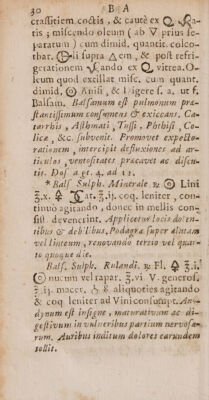 30 B A
crassitiem coctis, & cautè ex 🜄 Ra-
tis; miscendo oleum (ab prius se-
paratum) cum dimid. quantit. colco-
thar. Oli supra ex in, & post refri-
gerationem ando ex vitrea. O-
leum quod exillat misc. cum quant.
dimid. Anisi, & Digere s. a. ut f.
Balsam. Balsamum est pulmonum præ-
stantissimum consumens & exiccans. Ca-
tarrhis, Asthmati, Tussi, Phthisi, Co-
licæ, &c. subvenit. Promovet expector-
rationem, intercipit defluxiones ad ar-
ticulos, ventositates præcavet ac discu-
tit. Dos à gt. 4. ad 12.
* Balf Sulph. Minerale ℞ Lini
℥.x. 🜍 Cat. ℥.ij. coq. leniter, con-
tinuò agitando, donec in mellis con-
sist devenerint. Applicetur locis dolen-
tibus & debilibus. Podagra super alutam
vel linteum, renovando tertio vel quar-
to quoque die.
Balf. Sulph. Rulandi. ℞ Fl. 🜍 ℥.i.
num vel rapar. ℥.vi. V generos.
℥.ij. macer. & aliquoties agitando
& coq. leniter ad Vini consumpt. Ano-
dynum est insigne, maturativum ac di-
gestivum in vulneribus partium nervosa-
rum. Auribus inditum dolores earundem
tollit.